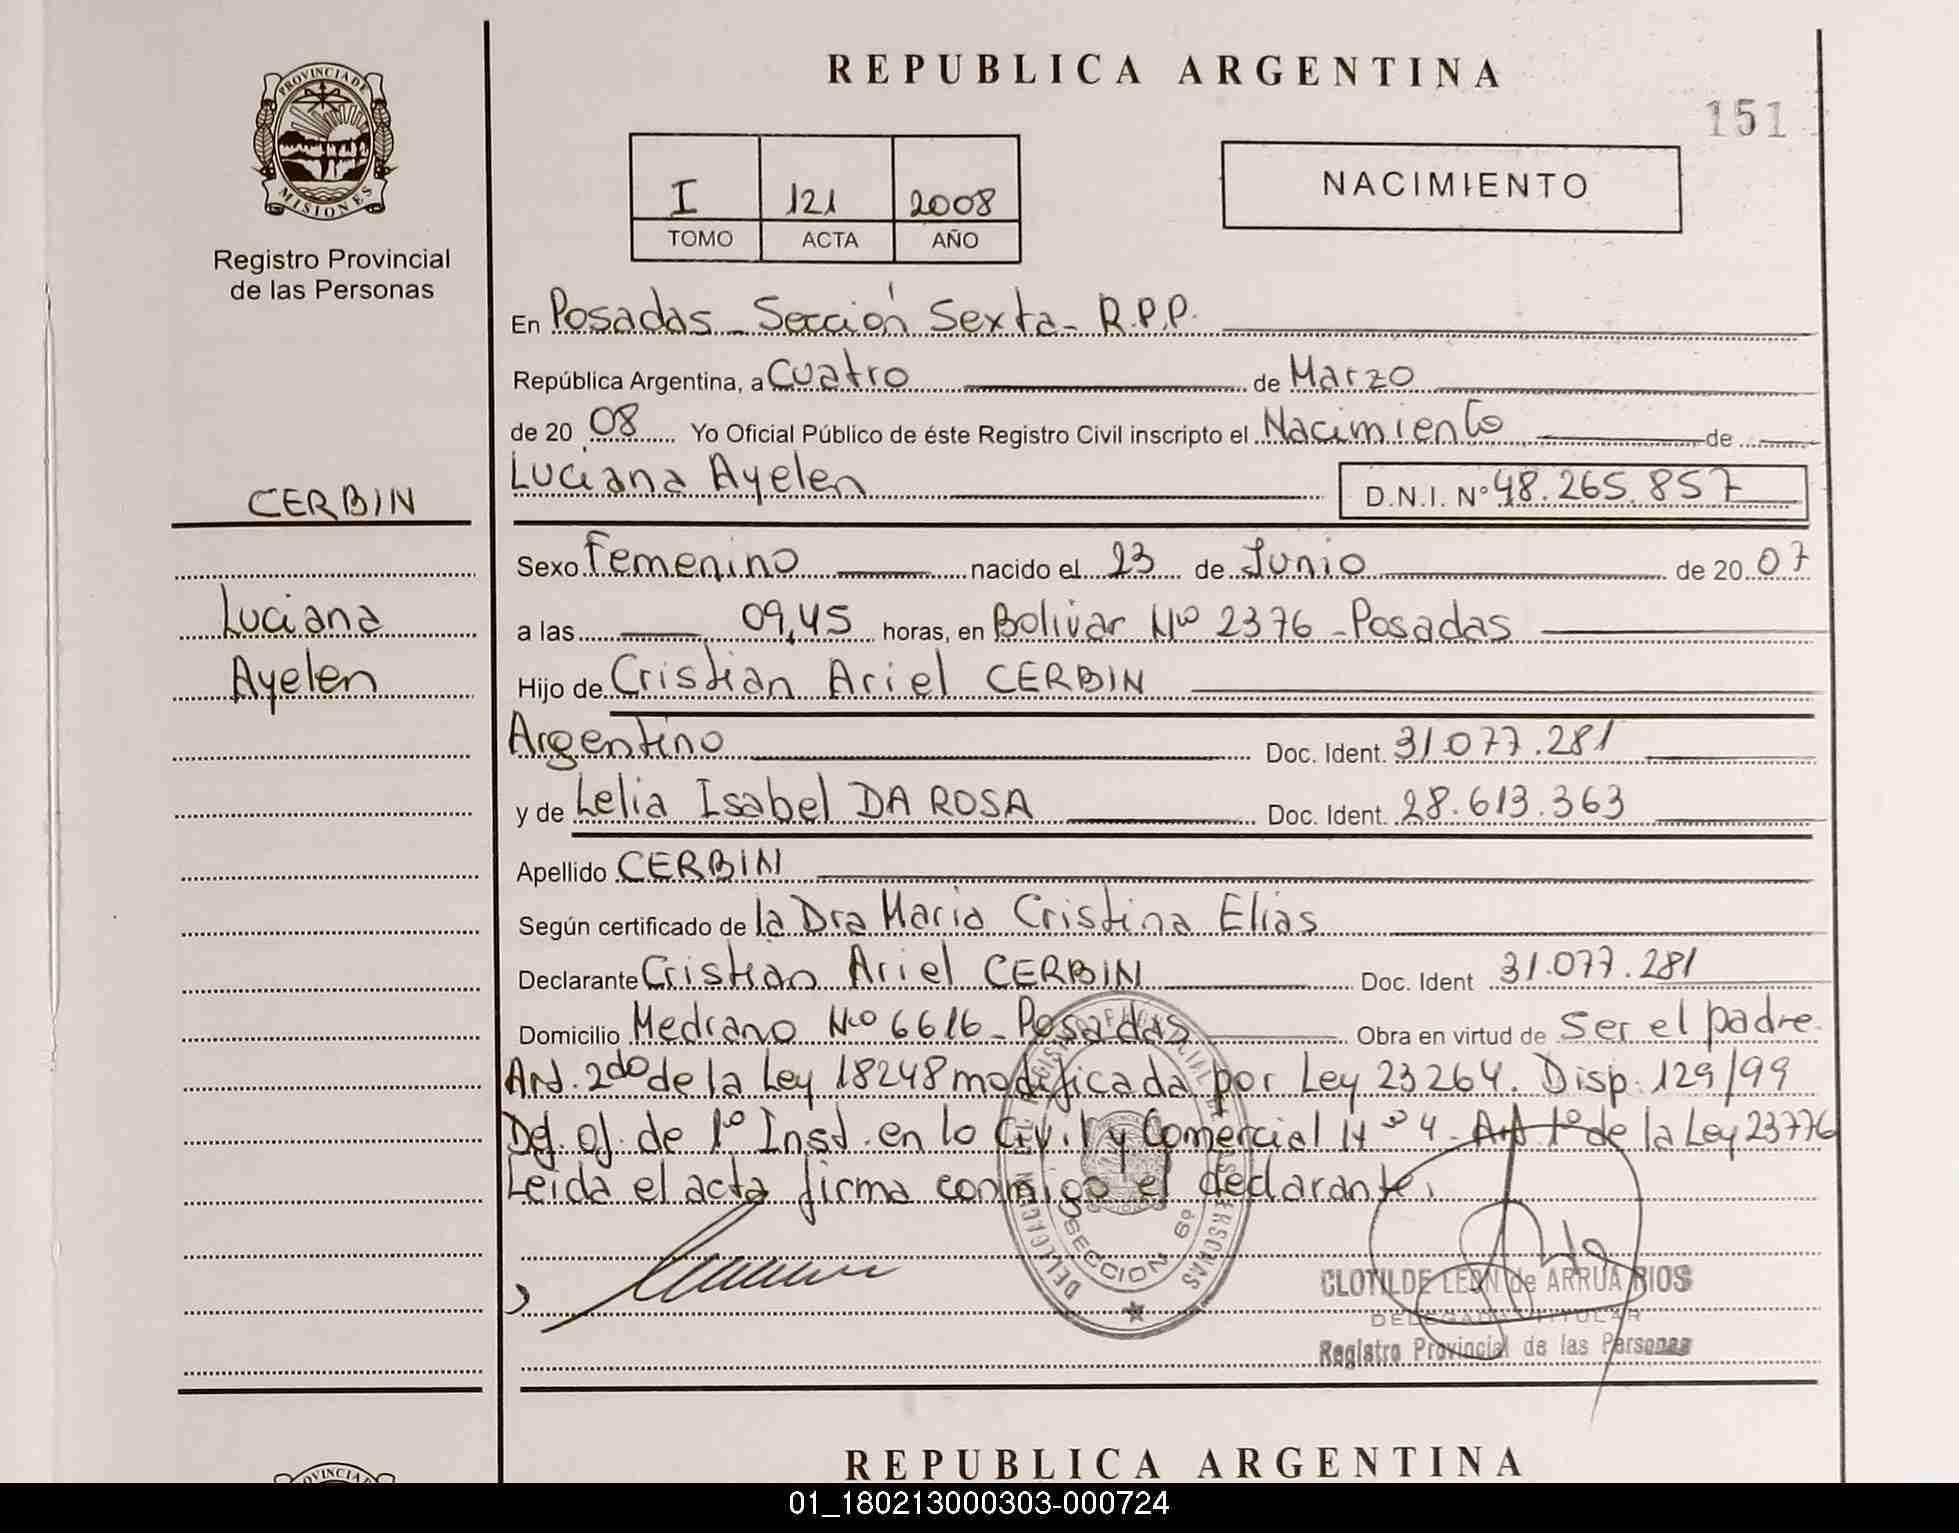 REPUBLICA ARGENTINA
151
PROVINCIA DE
MISIONES
Registro Provincial
de las Personas
I 121 2008
TOMO ACTA AÑO
NACIMIENTO
En Posadas - Sección Sexta - R.P.P.
República Argentina, a Cuatro de Marzo
de 20 08 Yo Oficial Público de éste Registro Civil inscripto el Nacimiento de
Luciana Ayelen D.N.I. Nº 48.265.857
CERBIN
Luciana
Ayelen
Sexo Femenino nacido el 23 de Junio de 20 07
a las 09,45 horas, en Bolivar Nº 2376 - Posadas
Hijo de Cristian Ariel CERBIN
Argentino Doc. Ident. 31.077.281
y de Lelia Isabel DA ROSA Doc. Ident. 28.613.363
Apellido CERBIN
Según certificado de la Dra Maria Cristina Elias
Declarante Cristian Ariel CERBIN Doc. Ident 31.077.281
Domicilio Medrano Nro 6616 - Posadas Obra en virtud de ser el padre.
Art. 2do de la Ley 18248 modificada por Ley 23264. Disp. 129/99
Def. Of. de 1º Inst. en lo Civil y Comercial Nº 4 - Art 1º de la Ley 23776
Leida el acta firma conmigo el declarante.
SECCION 6º
CLOTILDE LEON de ARRUA RIOS
DELEGADA TITULAR
Registro Provincial de las Personas
REPUBLICA ARGENTINA
01_180213000303-000724